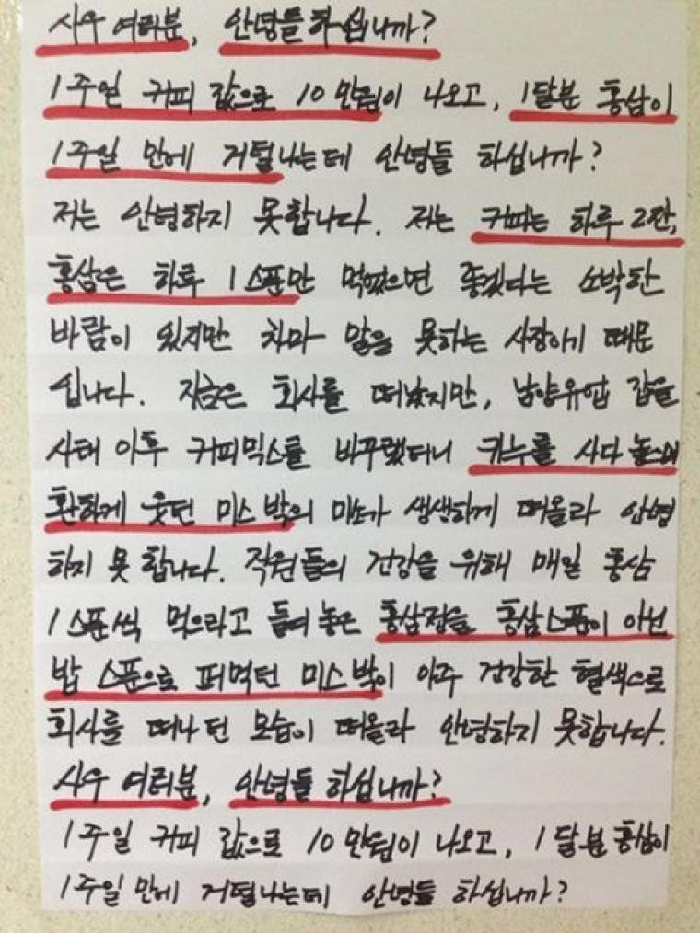 사우 여러분, 안녕들 하십니까?
1주일 커피 값으로 10만원이 나오고, 1달분 홍삼이
1주일 만에 거덜나는데 안녕들 하십니까?
저는 안녕하지 못합니다. 저는 커피는 하루 2잔,
홍삼은 하루 1스푼만 먹었으면 좋겠다는 소박한
바람이 있지만 차마 말을 못하는 사장이기 때문
입니다. 지금은 회사를 떠났지만, 남양유업 갑을
사태 이후 커피믹스를 바꾸랬더니 카누를 사다 놓으며
환하게 웃던 미스 박의 미소가 생생하게 떠올라 안녕
하지 못합니다. 직원들의 건강을 위해 매일 홍삼
1스푼씩 먹으라고 들여놓은 홍삼정을 홍삼스푼이 아닌
밥 스푼으로 퍼먹던 미스 박이 아주 건강한 혈색으로
회사를 떠나던 모습이 떠올라 안녕하지 못합니다.
사우 여러분, 안녕들 하십니까?
1주일 커피 값으로 10만원이 나오고, 1달분 홍삼이
1주일 만에 거덜나는데 안녕들 하십니까?